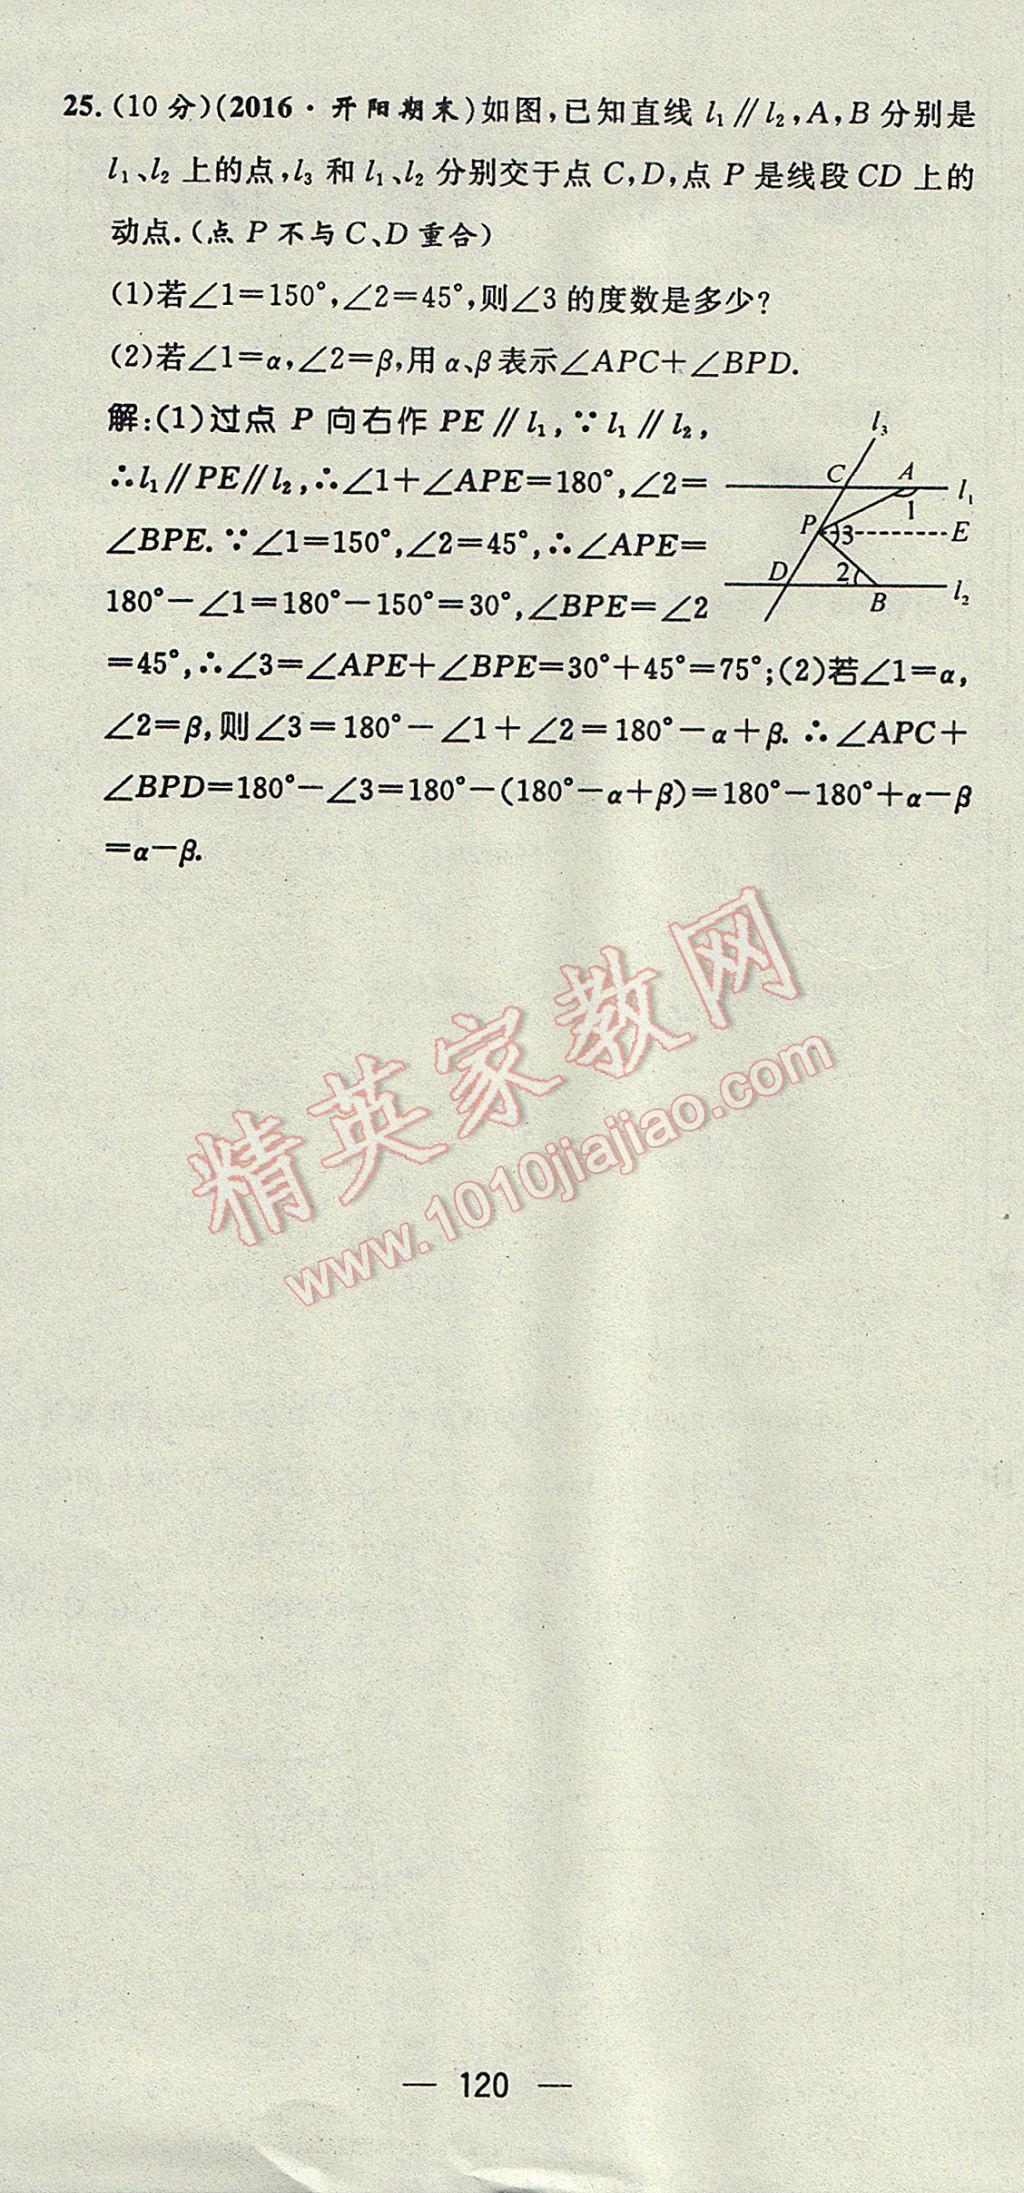 25.(10分)(2016·开阳期末)如图,已知直线 l₁∥l₂,A,B 分别是
l₁、l₂ 上的点,l₃ 和 l₁、l₂ 分别交于点 C,D,点 P 是线段 CD 上的
动点.(点 P 不与 C、D 重合)
(1)若∠1=150°,∠2=45°,则∠3 的度数是多少?
(2)若∠1=α,∠2=β,用 α、β 表示∠APC+∠BPD.
解:(1)过点 P 向右作 PE∥l₁,∵l₁∥l₂,
∴l₁∥PE∥l₂,∴∠1+∠APE=180°,∠2=
∠BPE.∵∠1=150°,∠2=45°,∴∠APE=
180°-∠1=180°-150°=30°,∠BPE=∠2
=45°,∴∠3=∠APE+∠BPE=30°+45°=75°;(2)若∠1=α,
∠2=β,则∠3=180°-∠1+∠2=180°-α+β.∴∠APC+
∠BPD=180°-∠3=180°-(180°-α+β)=180°-180°+α-β
=α-β.
l₃
C A
l₁
1
P 3 E
D 2
B l₂
精英家教网
www.1010jiajiao.com
— 120 —